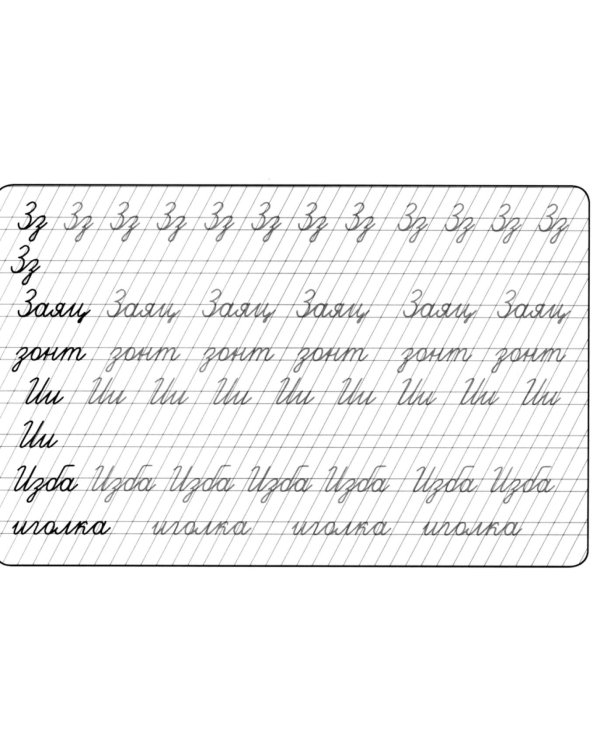 Зз Зз Зз Зз Зз Зз Зз Зз Зз Зз Зз Зз
Зз
Заяц Заяц Заяц Заяц Заяц Заяц
зонт зонт зонт зонт зонт зонт
Ии Ии Ии Ии Ии Ии Ии Ии Ии
Ии
Изба Изба Изба Изба Изба Изба Изба
иголка иголка иголка иголка